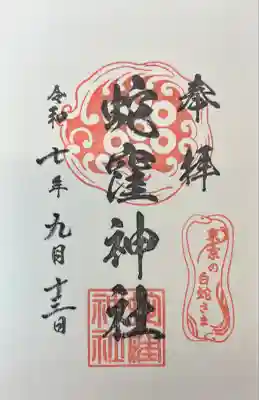 奉拝
蛇窪神社
令和七年九月十三日
東京の白蛇さま